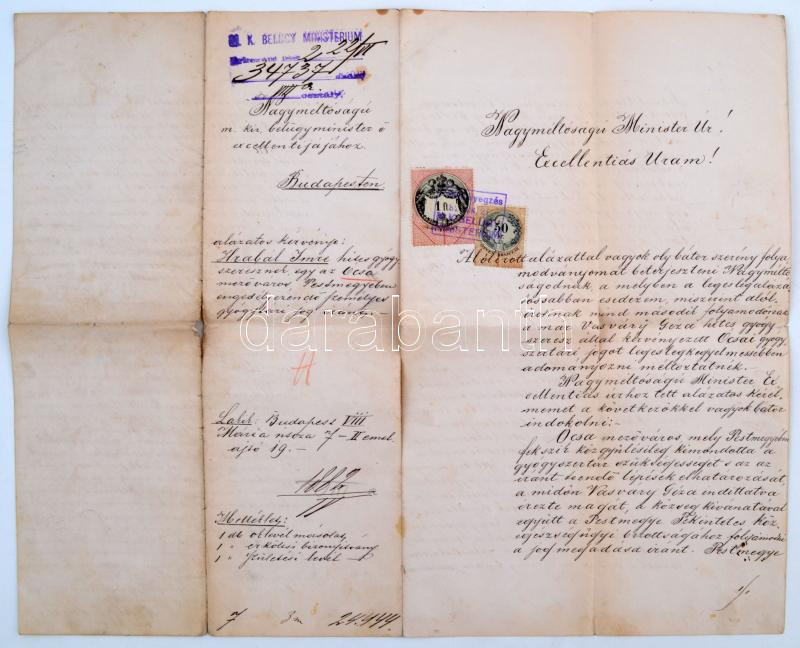 M. K. BELÜGY MINISTERIUM
34737
osztály.
Nagyméltóságú
m. kir. belügyminister ő
excellentiájához.
Budapesten
alázatos kérvénye:
Hrabál Imre hites gyógy
szerésznek, egy az Ócsa
mezőváros, Pestmegyében
engedélyezendő személyes
gyógyszertári jog iránt.—
H
Lakik: Budapest VIII
Mária utcza 7 – II emel.
ajtó 19.—
Melléklet:
1 db oklevél másolat
1 „ erkölcsi bizonyítvány
1 „ születési levél
7 24.944.
Nagyméltóságú Minister Úr!
Excellentiás Uram!
1 50
Alólírott alázattal vagyok oly bátor szerény folya
modványomat béterjeszteni Nagymél­tó
ságodnak, a melyben a legeslegaláza
tosabban esedezem, miszerint alól
írottnak mind második folyamodónak
a már Vasváry Géza hites gyógy
szerész által kérvényezett Ócsai gyógy
szertári jogot legeslegkegyelmesebben
adományozni méltóztatnék.
Nagyméltóságú Minister Ex
cellentiás úrhoz tett alázatos kérel
memet a következőkkel vagyok bátor
indokolni:—
Ócsa mezőváros, mely Pestmegyében
fekszik közgyűlésileg kimondotta a
gyógyszertár szükségességét s az az
iránt teendő lépések elhatározását,
a midőn Vasváry Géza indíttatva
érezte magát, a község kívánatával
együtt a Pestmegye Tekintetes Köz
egészségügyi bizottságához folyamodni
a jog megadása iránt. Pestmegye
darabanth